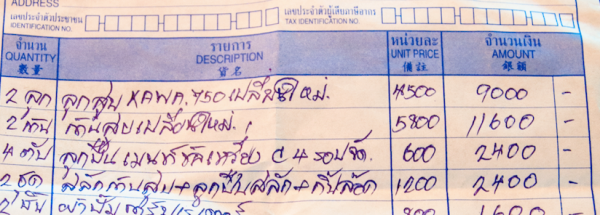 ADDRESS
เลขประจำตัวประชาชน เลขประจำตัวผู้เสียภาษีอากร
IDENTIFICATION NO. TAX IDENTIFICATION NO.
จำนวน รายการ หน่วยละ จำนวนเงิน
QUANTITY DESCRIPTION UNIT PRICE AMOUNT
數量 貨名 備註 銀額
2 ลูก ลูกสูบ KAWA.750 เปลี่ยนใหม่. 4500 9000 -
2 ก้าน ก้านสูบเปลี่ยนใหม่. 5800 11600 -
4 ตับ ลูกปืนเมนท์ C4 รอบจัด. 600 2400 -
2 ชุด สลักก้านสูบ+ลูกปืนสลัก+กิ๊บล็อค 1200 2400 -